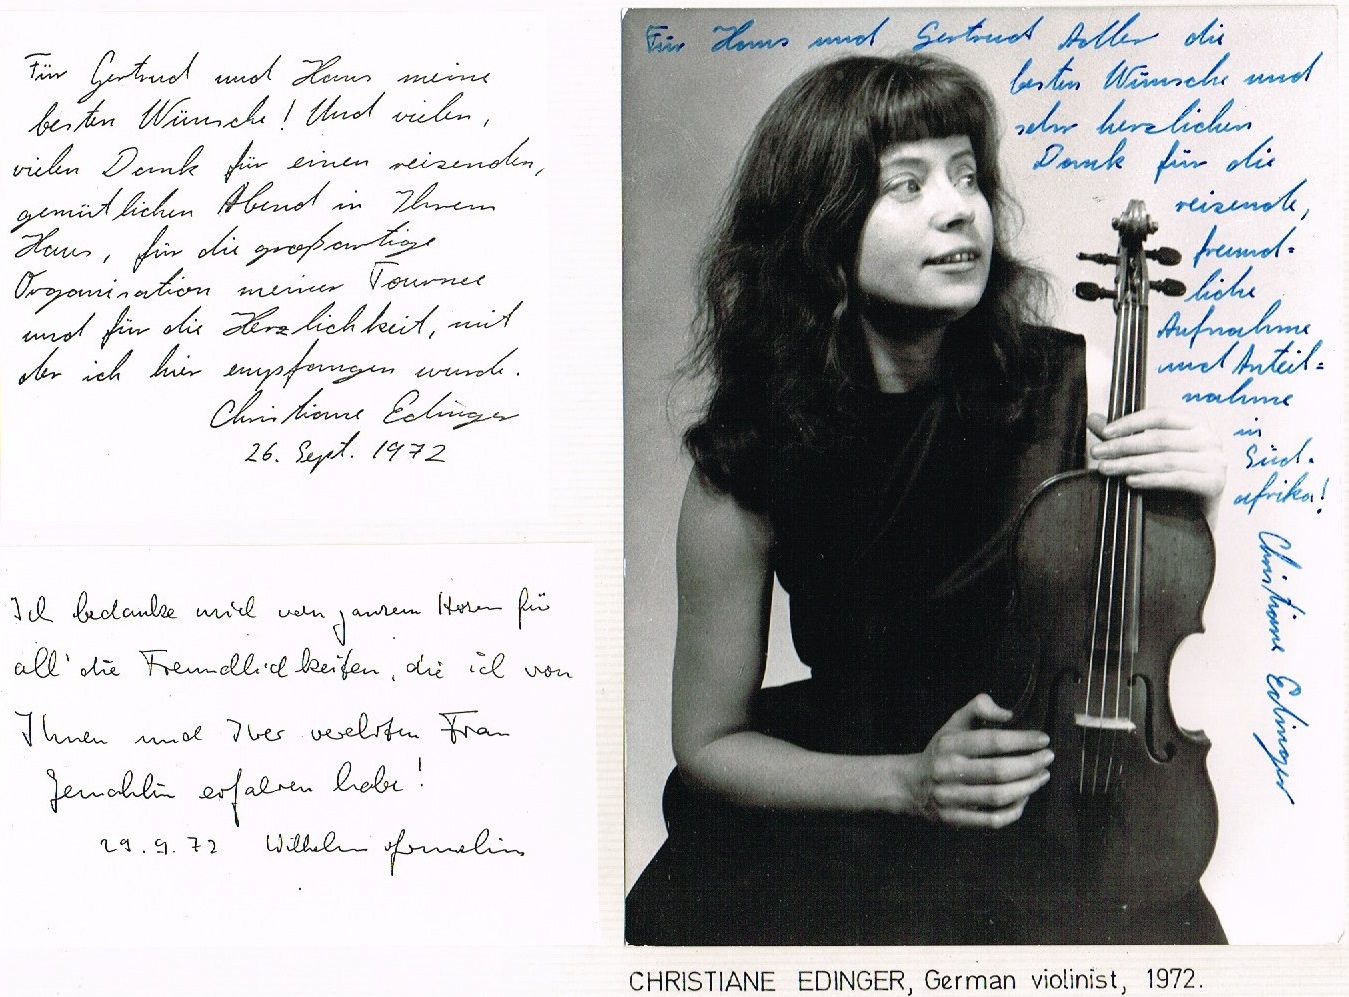 Für Gertrud und Hans meine
besten Wünsche! Und vielen,
vielen Dank für einen reizenden,
gemütlichen Abend in Ihrem
Haus, für die großartige
Organisation meiner Tournee
und für die Herzlichkeit, mit
der ich hier empfangen wurde.
Christiane Edinger
26. Sept. 1972
Ich bedanke mich von ganzem Herzen für
all' die Freundlichkeiten, die ich von
Ihnen und Ihrer verehrten Frau
Gemahlin erfahren habe!
29.9.72 Wilhelm
Für Hans und Gertrud Adler die
besten Wünsche und
sehr herzlichen
Dank für die
reizende,
freund=
liche
Aufnahme
und Anteil=
nahme
in
Süd-
afrika!
Christiane Edinger
CHRISTIANE EDINGER, German violinist, 1972.